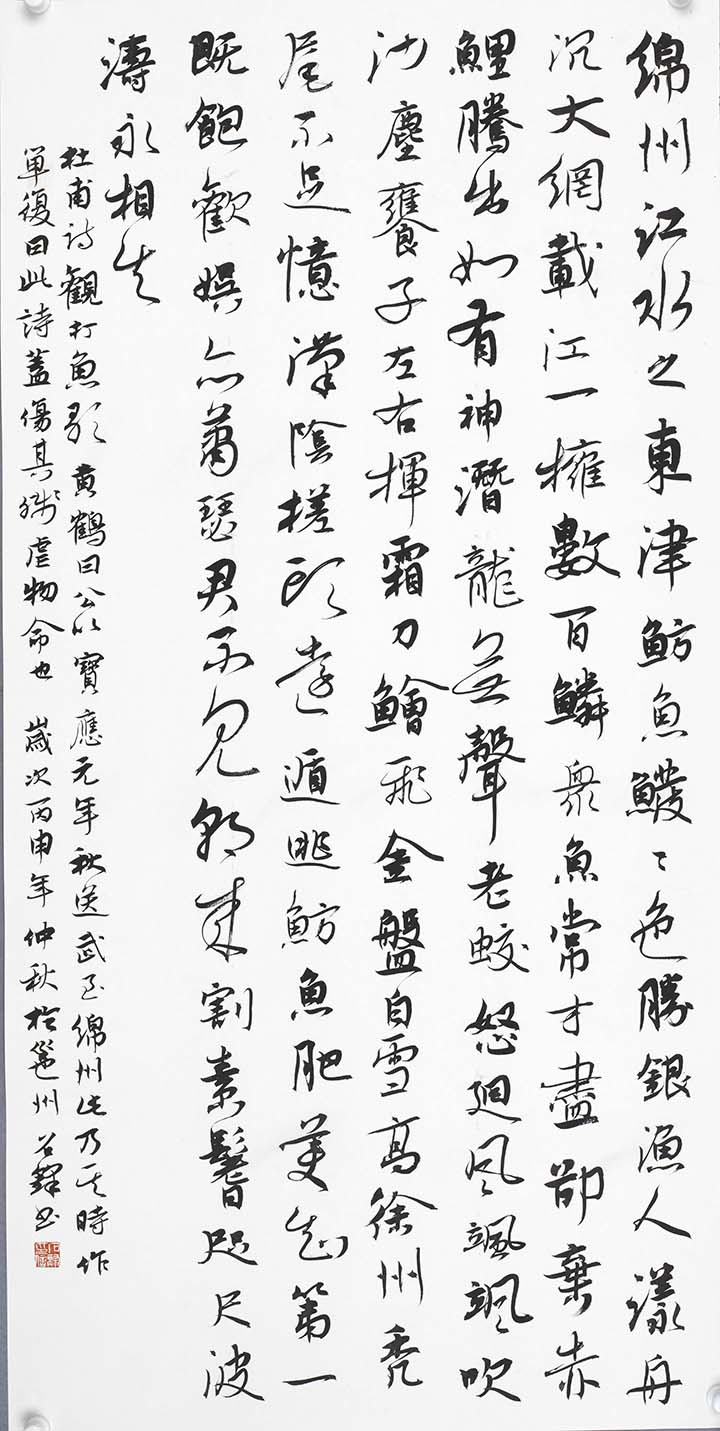 綿州江水之東津魴魚鱍〻色勝銀漁人漾舟
沉大網載江一擁數百鱗衆魚常才盡卻棄赤
鯉騰出如有神潛龍無聲老蛟怒廻風颯颯吹
沙塵饔子左右揮霜刀鱠飛金盤白雪高徐州秃
尾不足憶漢陰槎頭遠遁逃魴魚肥美知第一
既飽歡娛亦蕭瑟君不見朝来割素鬐咫尺波
濤永相失
杜甫詩觀打魚歌 黃鶴曰公以寶應元年秋送武至綿州此乃其時作
單復曰此詩蓋傷其殘虐物命也 歲次丙申年仲秋於邕州 書